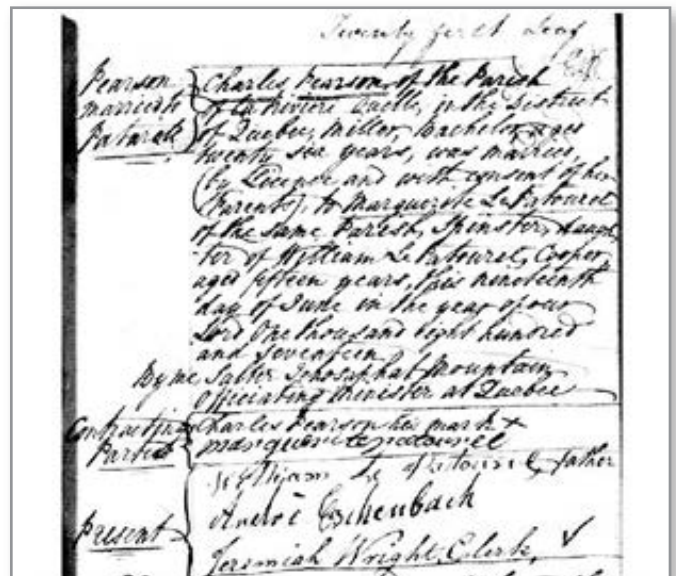 Twenty first Leaf
Pearson
married
Patorell
Charles Pearson of the Parish
of la Riviere Quelle, in the District
of Quebec, Miller, Bachelor, aged
twenty six years, was married,
(by Licence and with consent of her
Parents), to Marguerite Le Patourel
of the same Parish, Spinster, daugh-
-ter of William Le Patourel, Cooper
aged fifteen years, this nineteenth
day of June in the year of our
Lord One thousand eight hundred
and seventeen
By me, Salter Jehosaphat Mountain
officiating Minister at Quebec
Contracting
Parties
Charles Pearson his mark x
marguerite patourel
William Le Patourel, father
Present
André Eschenbach
Jeremiah Wright, Clerk,